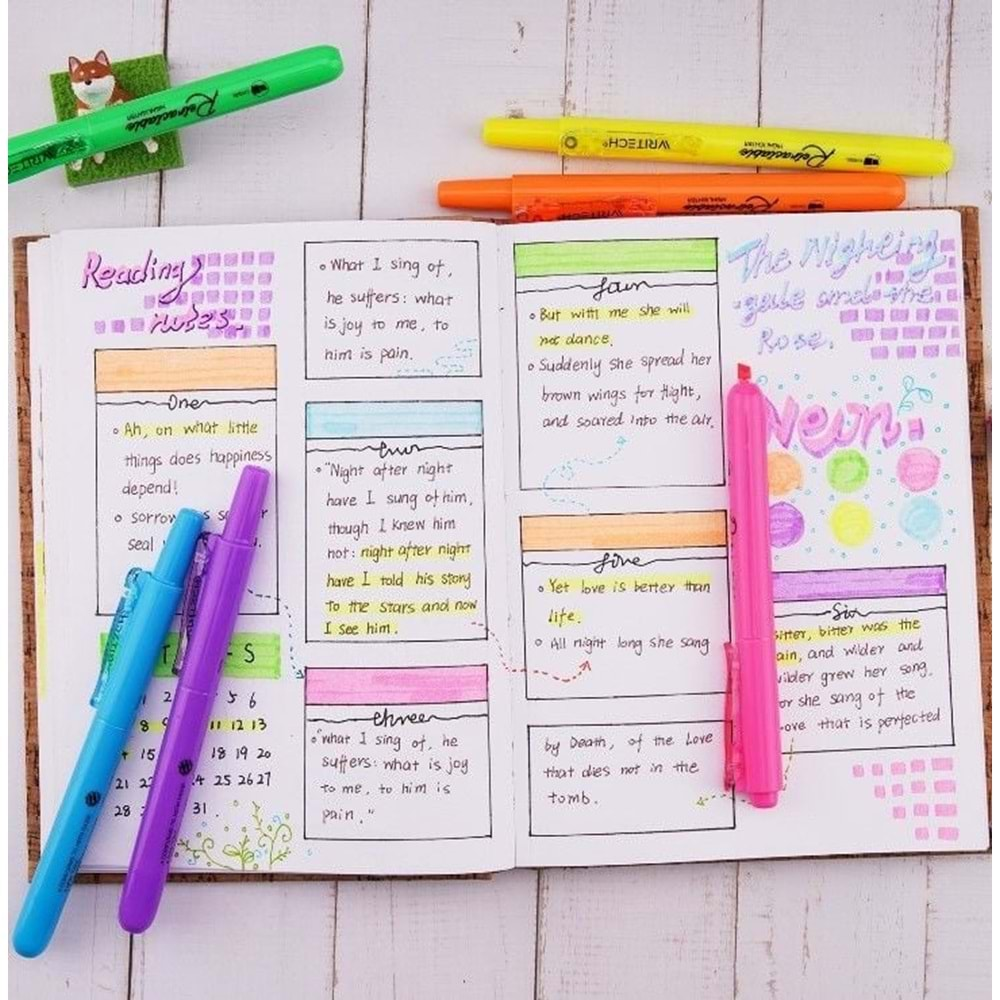 WRITECH
Retractable
HIGHLIGHTER
WRITECH
Retractable
HIGHLIGHTER
WRITECH
Retractable
HIGHLIGHTER
Reading
notes.
One
Ah, on what little
things does happiness
depend!
sorrow
seal
T S
1 2 5 6
8 9 11 12 13
15 18 19 20
21 22 25 26 27
28 31.
What I sing of,
he suffers: what
is joy to me, to
him is pain.
"Night after night
have I sung of him,
though I knew him
not: night after night
have I told his story
to the stars and now
I see him.
three
"what I sing of, he
suffers: what is joy
to me, to him is
pain."
But with me she will
not dance.
Suddenly she spread her
brown wings for flight,
and soared into the air.
five
Yet love is better than
life.
All night long she sang
by Death, of the Love
that dies not in the
tomb.
The Nighting
gale and the
Rose.
Neon.
Six
bitter was the
and wilder and
grew her song.
she sang of the
that is perfected